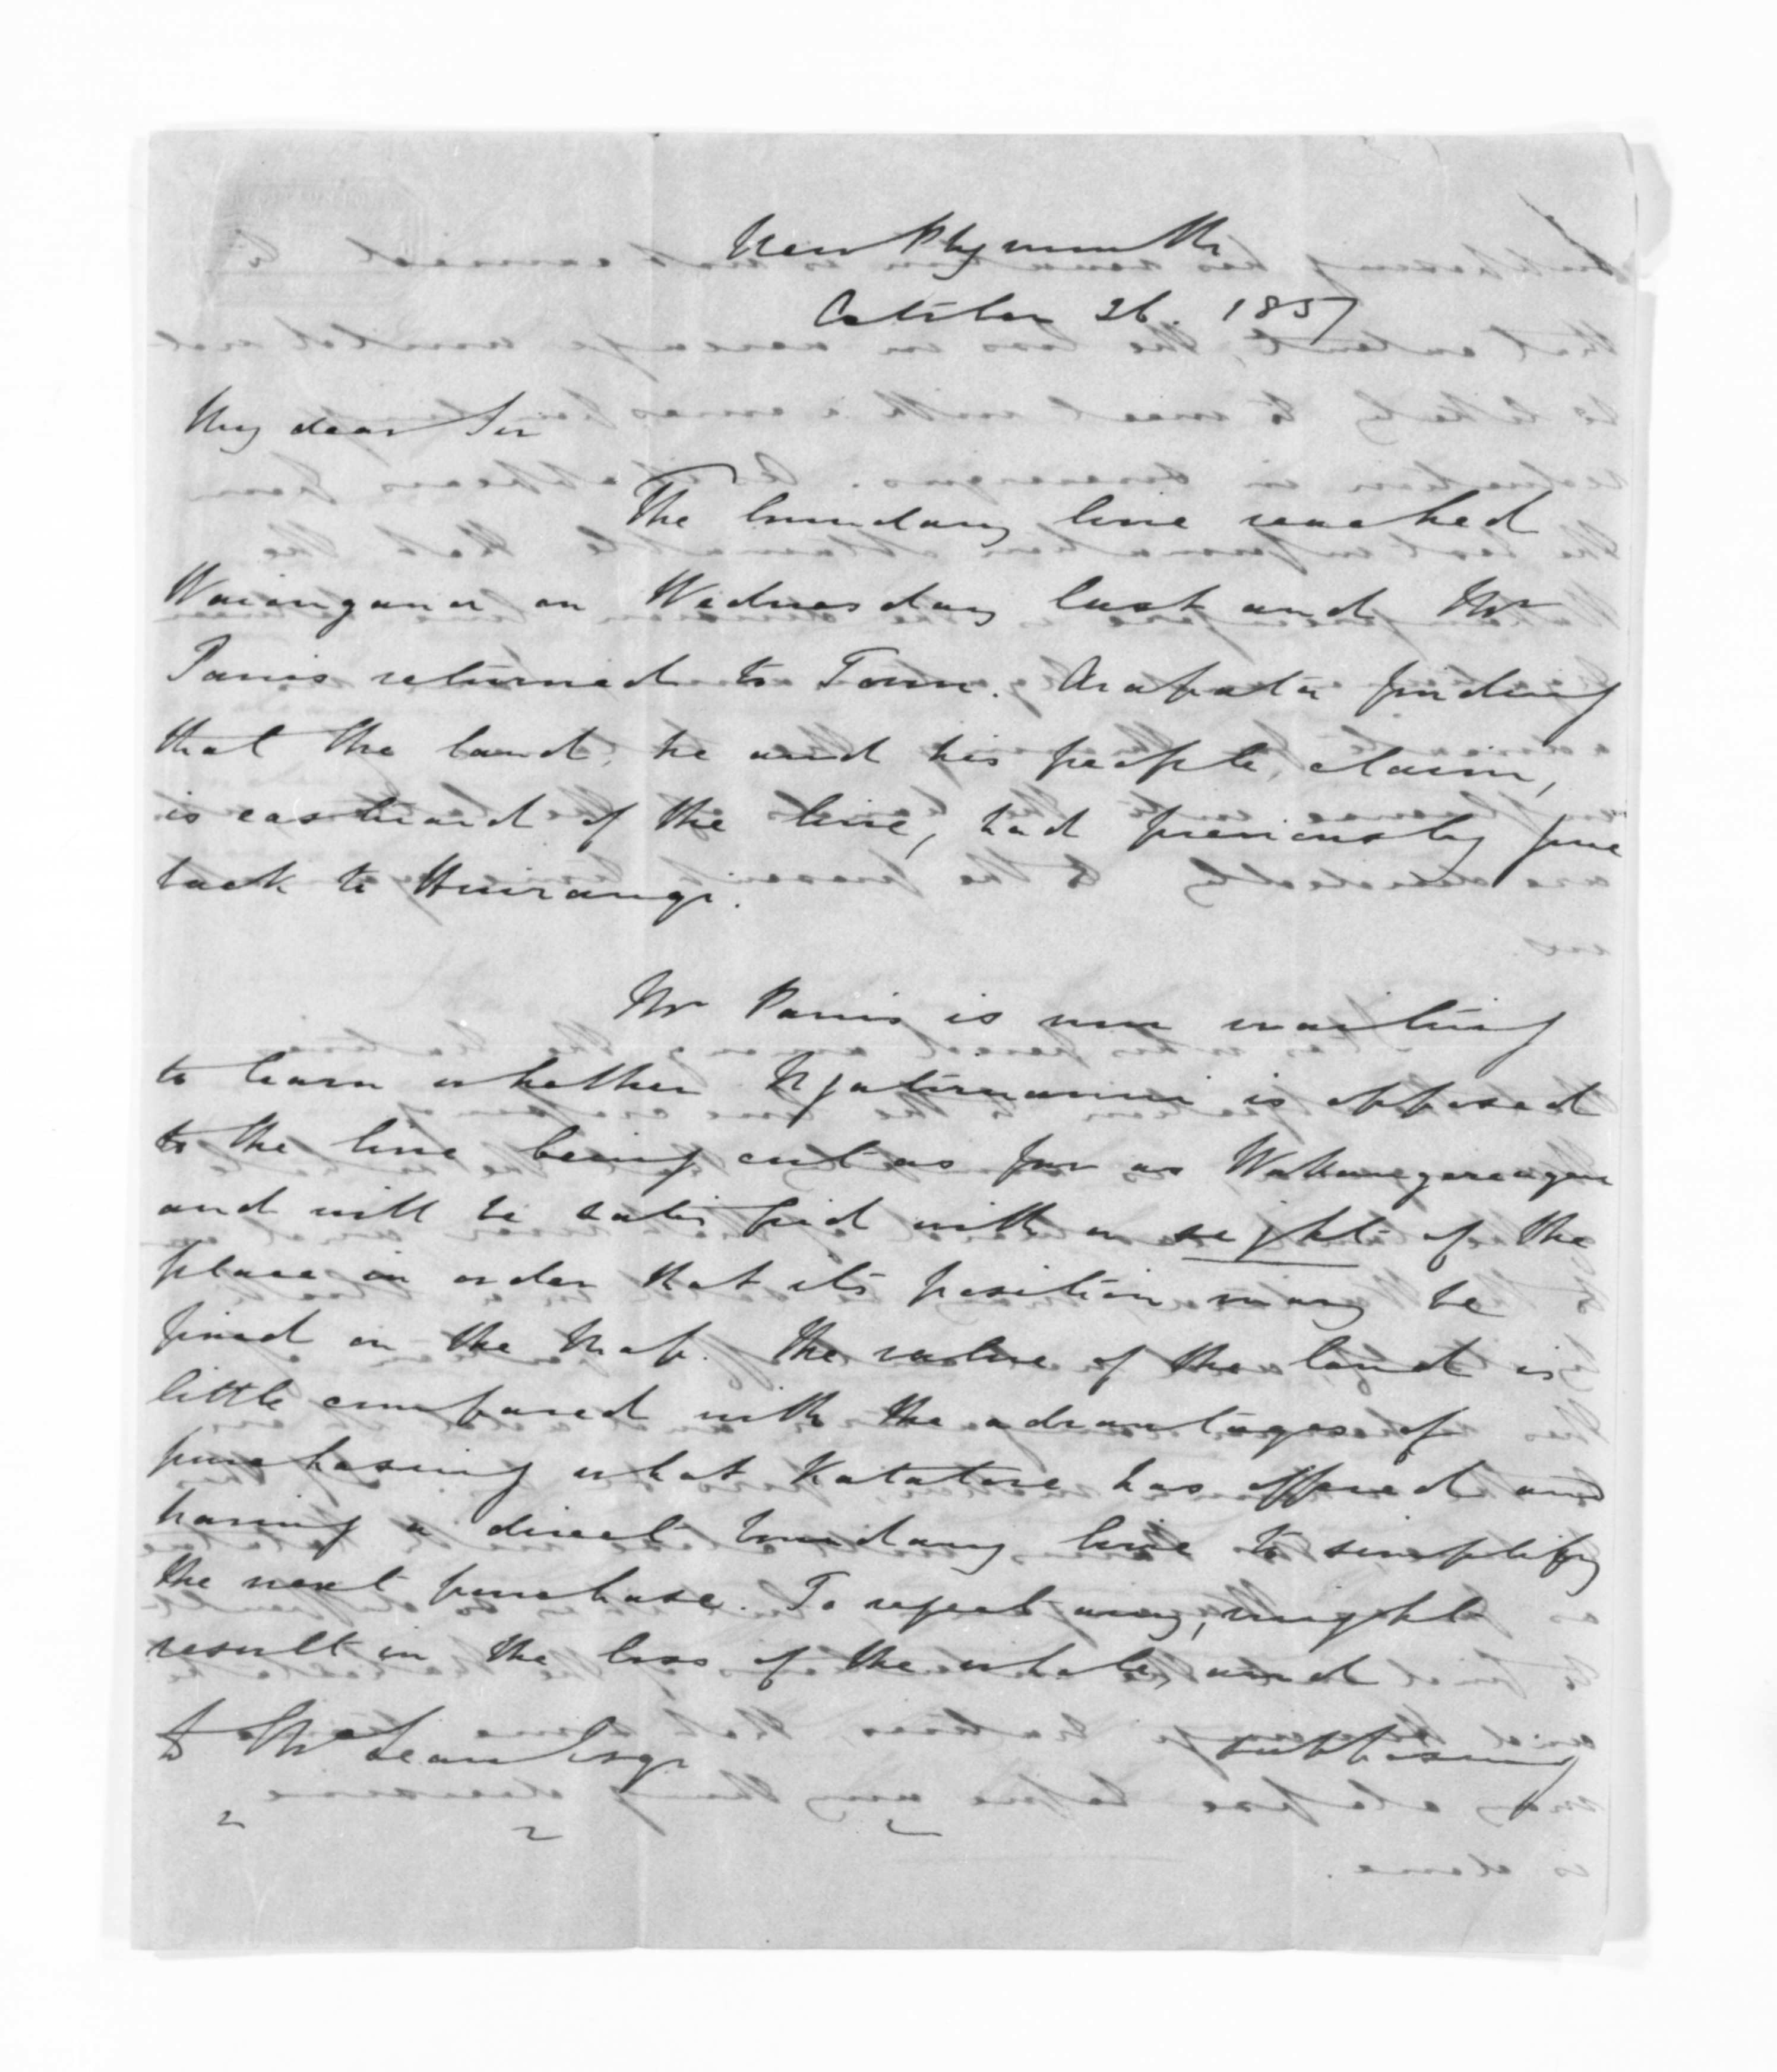 New Plymouth
October 26. 1857
My dear Sir
The boundary line reached
Waiongana on Wednesday last and Mr
Parris returned to Town. Arapata finding
that the land, he and his people, claim,
is eastward of the line, had previously gone
back to Huirangi.
Mr Parris is now waiting
to learn whether Ngatimaniu is opposed
to the line being cut as far as
and will be satisfied with a sight of the
place in order that its position may be
fixed on the Map. The value of the land is
little compared with the advantages of
purchasing what Katatore has offered and
having a direct boundary line to simplify
the next purchase. To reject any, might
result in the loss of the whole, and
D McLean Esqr supposing